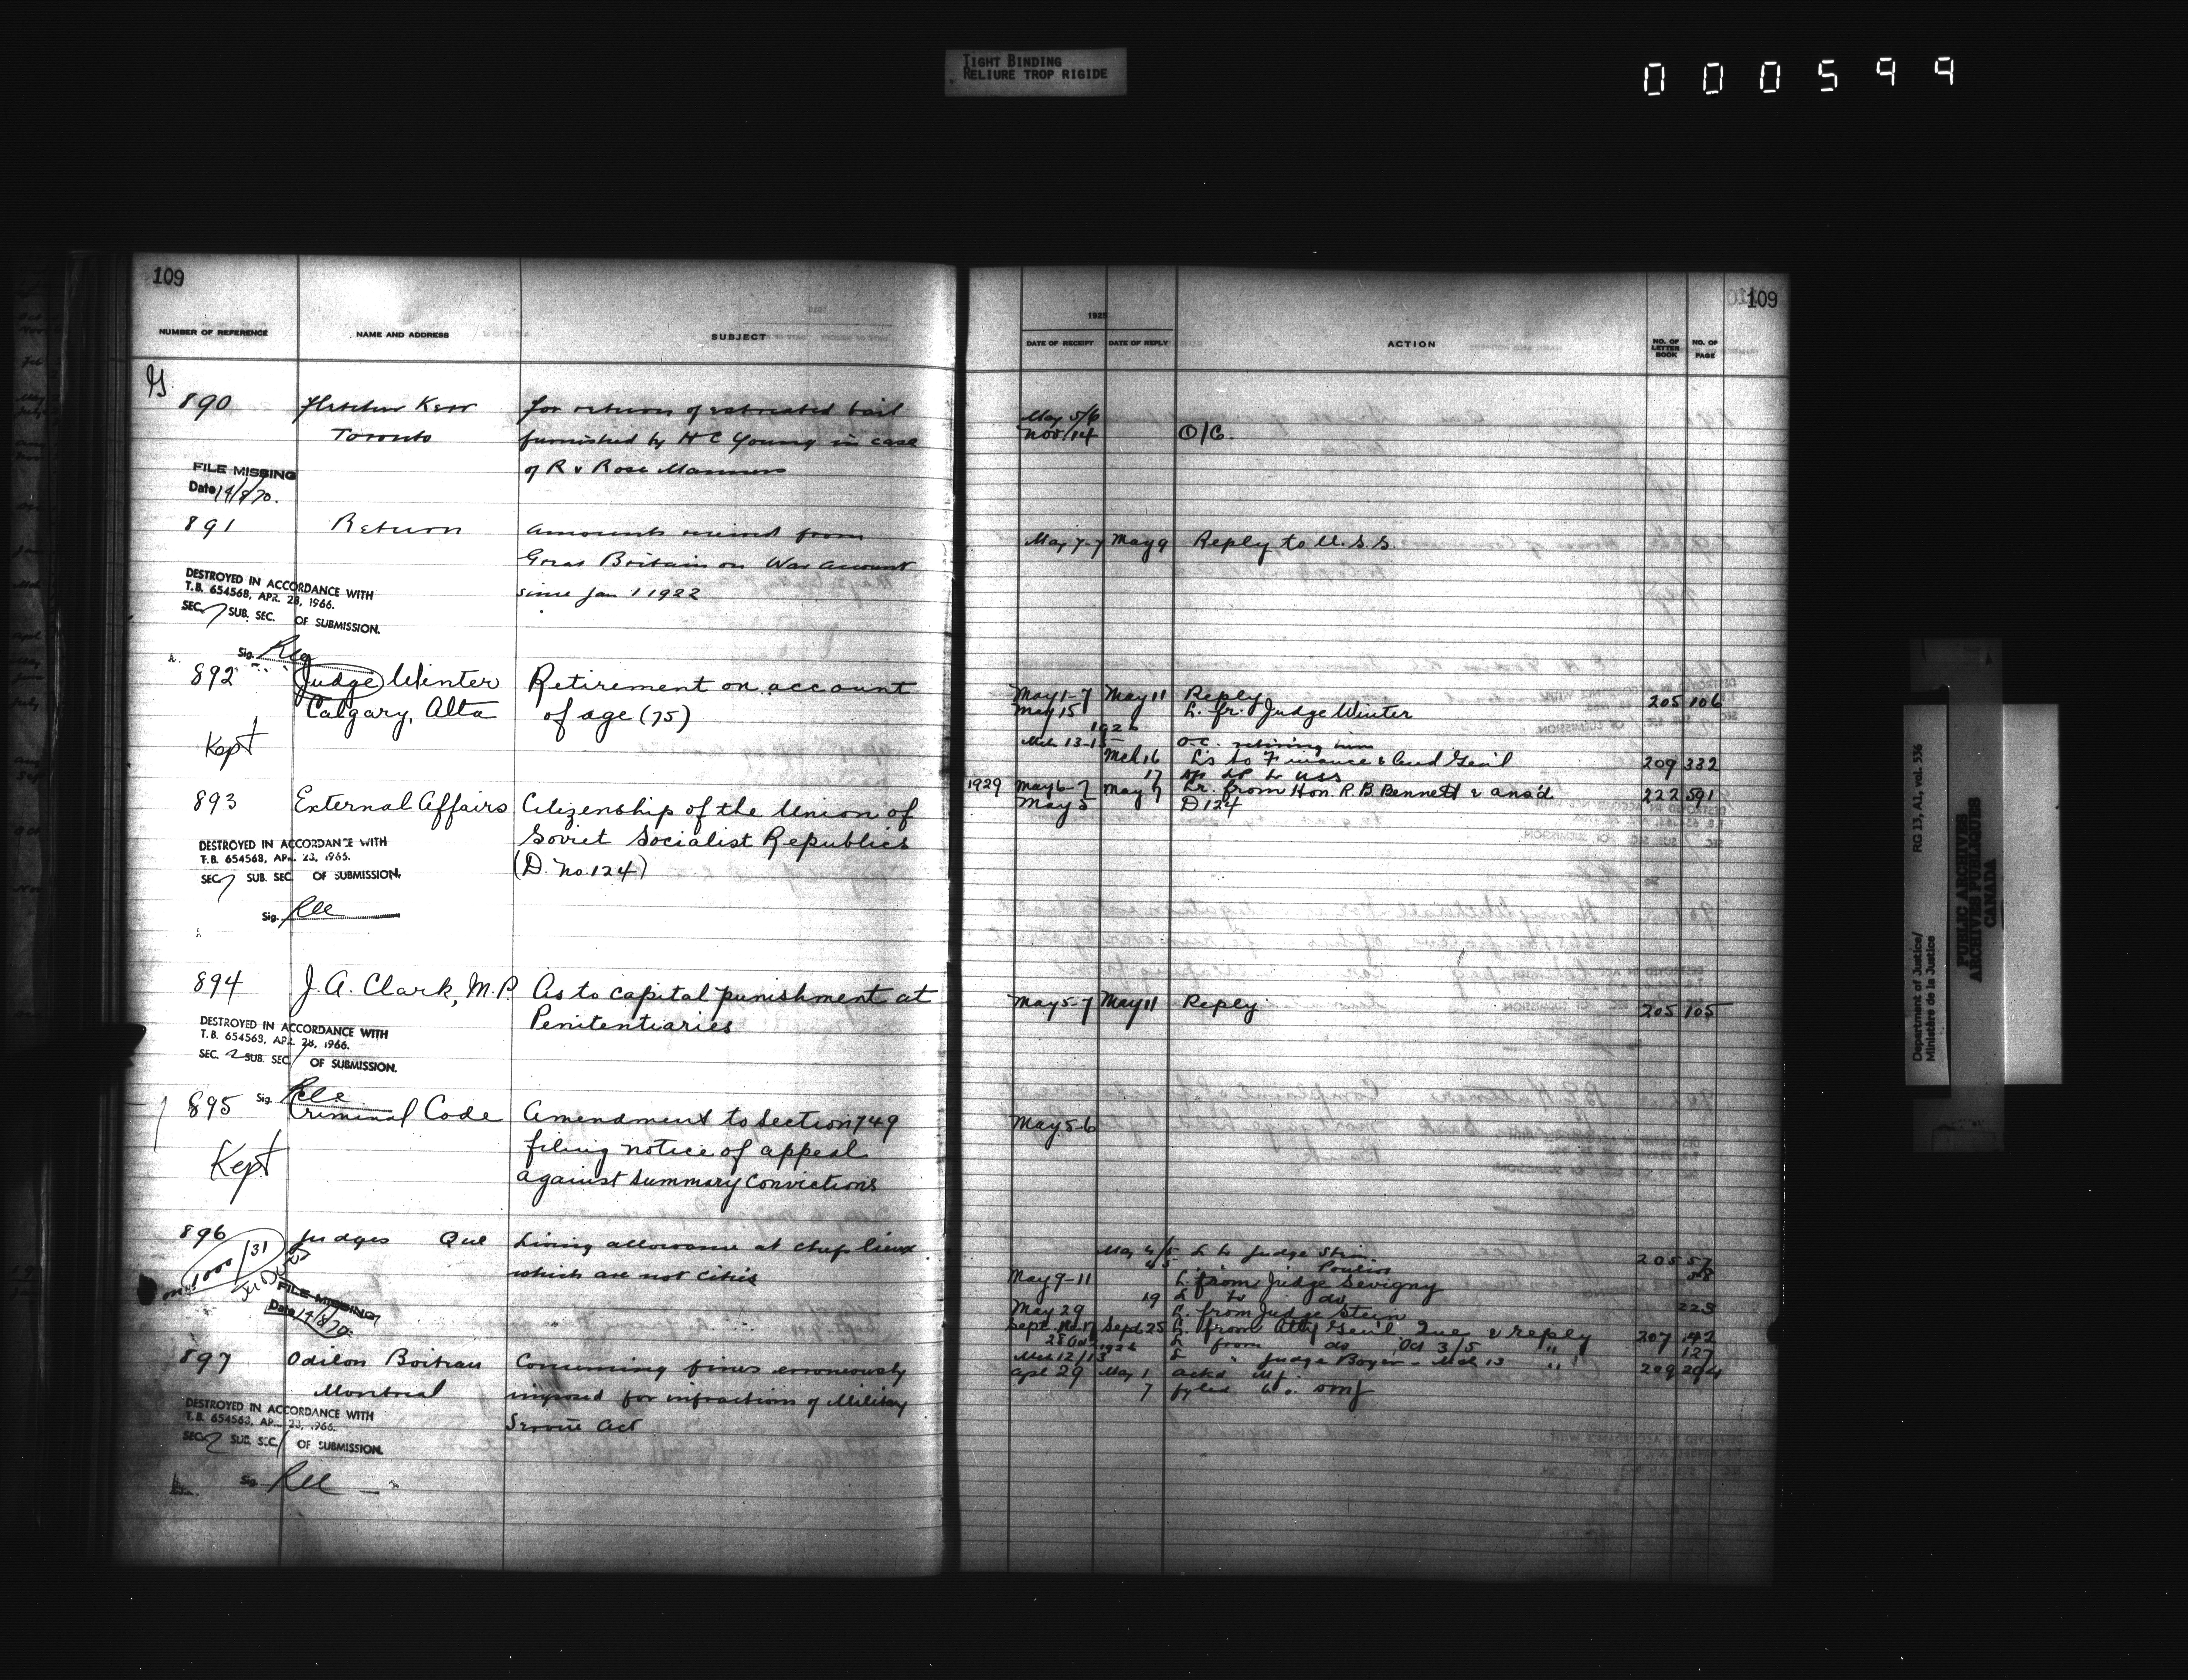 TIGHT BINDING
RELIURE TROP RIGIDE
000599
109
NUMBER OF REFERENCE
NAME AND ADDRESS
SUBJECT
890
Fletcher Kerr
Toronto
for return of estreated bail
furnished by H C Young in case
of R v Rose Manners
FILE MISSING
Date 14/8/70.
891
Return
Amounts received from
Great Britain on War Account
since Jan 1 1922
DESTROYED IN ACCORDANCE WITH
T.B. 654568, APR. 28, 1966.
SEC. 7 SUB. SEC. OF SUBMISSION.
Sig.
892
Judge Winter
Calgary, Alta
Retirement on account
of age (75)
Kept
893
External Affairs
Citizenship of the Union of
Soviet Socialist Republics
(D. No. 124)
DESTROYED IN ACCORDANCE WITH
T.B. 654568, APR. 28, 1966.
SEC. 7 SUB. SEC. OF SUBMISSION.
Sig.
894
J. A. Clark, M.P.
As to capital punishment at
Penitentiaries
DESTROYED IN ACCORDANCE WITH
T.B. 654568, APR. 28, 1966.
SEC. 2 SUB. SEC. / OF SUBMISSION.
Sig.
895
Criminal Code
Amendment to Section 749
filing notice of appeal
against summary convictions
Kept
896
Judges Que
Living allowance at chef lieux
which are not cities
on 1000/31
FILE MISSING
Date 14/8/70
897
Odilon Boiteau
Montreal
Concerning fines erroneously
imposed for infractions of Military
Service Act
DESTROYED IN ACCORDANCE WITH
T.B. 654568, APR. 28, 1966.
SEC. 2 SUB. SEC. / OF SUBMISSION.
Sig.
109
1925
DATE OF RECEIPT
DATE OF REPLY
ACTION
NO. OF LETTER BOOK
NO. OF PAGE
May 5/6
Nov 14 O/C.
May 7-7 May 9 Reply to U.S.S.
May 1-7 May 11 Reply 205 106
May 15 L. fr. Judge Winter
1926
Mch 13-15 O.C. retiring him
Mch 16 L's to Finance & Aud Gen'l 209 332
17 to USS
1929 May 6-7 May 7 Lr. from Hon. R.B. Bennett & ans'd 222 591
May 5 D 124
May 5-7 May 11 Reply 205 105
May 5-6
May 4/5 L to Judge Stein 205 57
Pouliot 58
May 9-11 L. from Judge Sevigny
19 L to do 223
May 29 L. from Judge Stein
Sept. 25 L. from Atty Gen'l Que & reply 207 142
from do Oct 3/5 " 127
Mch 12/13 " Judge Boyer - Mch 13 " 209 204
Apl 29 May 1 ackd
7 fyled
Department of Justice/
Ministère de la Justice
RG 13, A1, vol. 536
PUBLIC ARCHIVES
ARCHIVES PUBLIQUES
CANADA